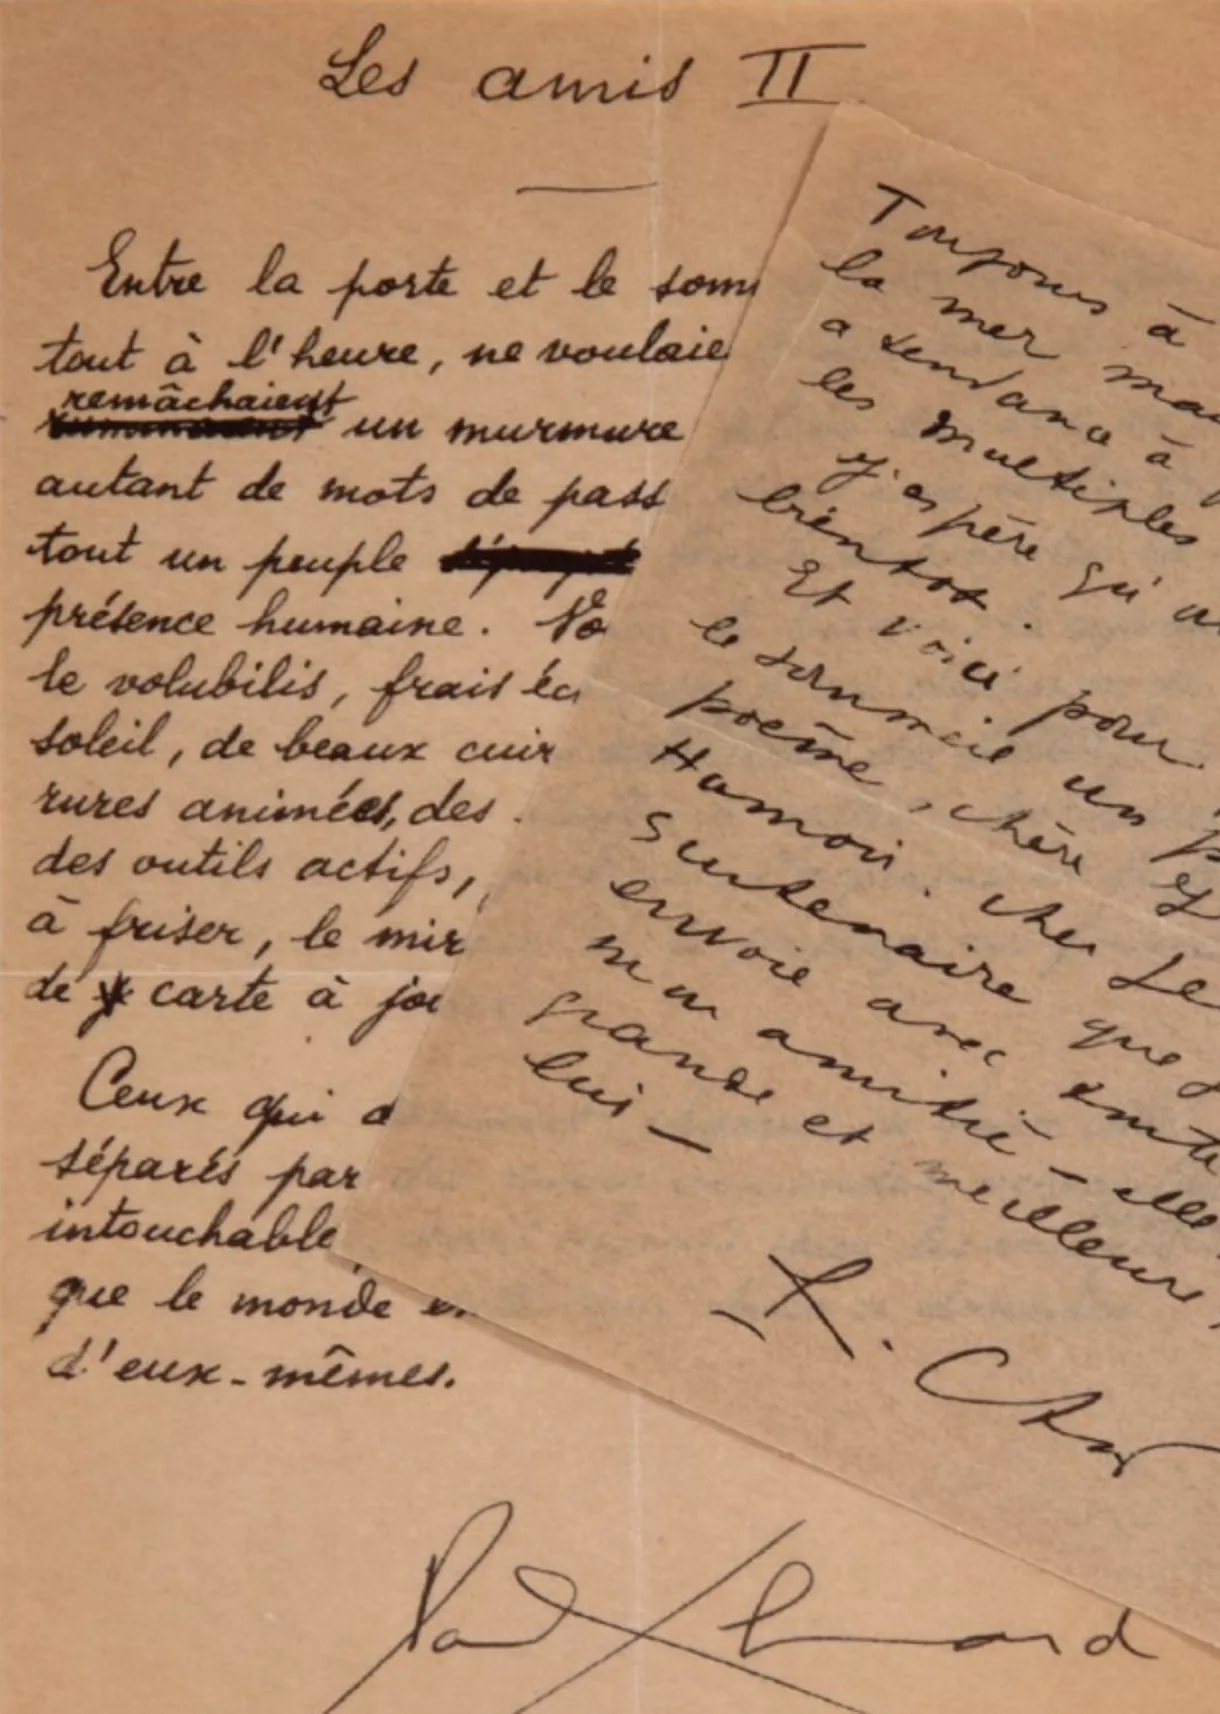 Les amis II
Entre la porte et le som
tout à l'heure, ne voulaie
remâchaient
un murmure
autant de mots de pass
tout un peuple
présence humaine. No
le volubilis, frais éc
soleil, de beaux cuir
rures animées, des
des outils actifs,
à friser, le mir
de carte à jou
Ceux qui d
séparés par
intouchable
que le monde
d'eux-mêmes.
Paul Eluard
Toujours à
la mer mai
a tendance à
les multiples
j'espère qu'
bientôt.
Et voici pour
le sommeil un p
poème, chère
Hamoir. cher Le
Scutenaire que j
envoie avec toute
mon amitié - elle
grande et meilleure
lui -
R. Char